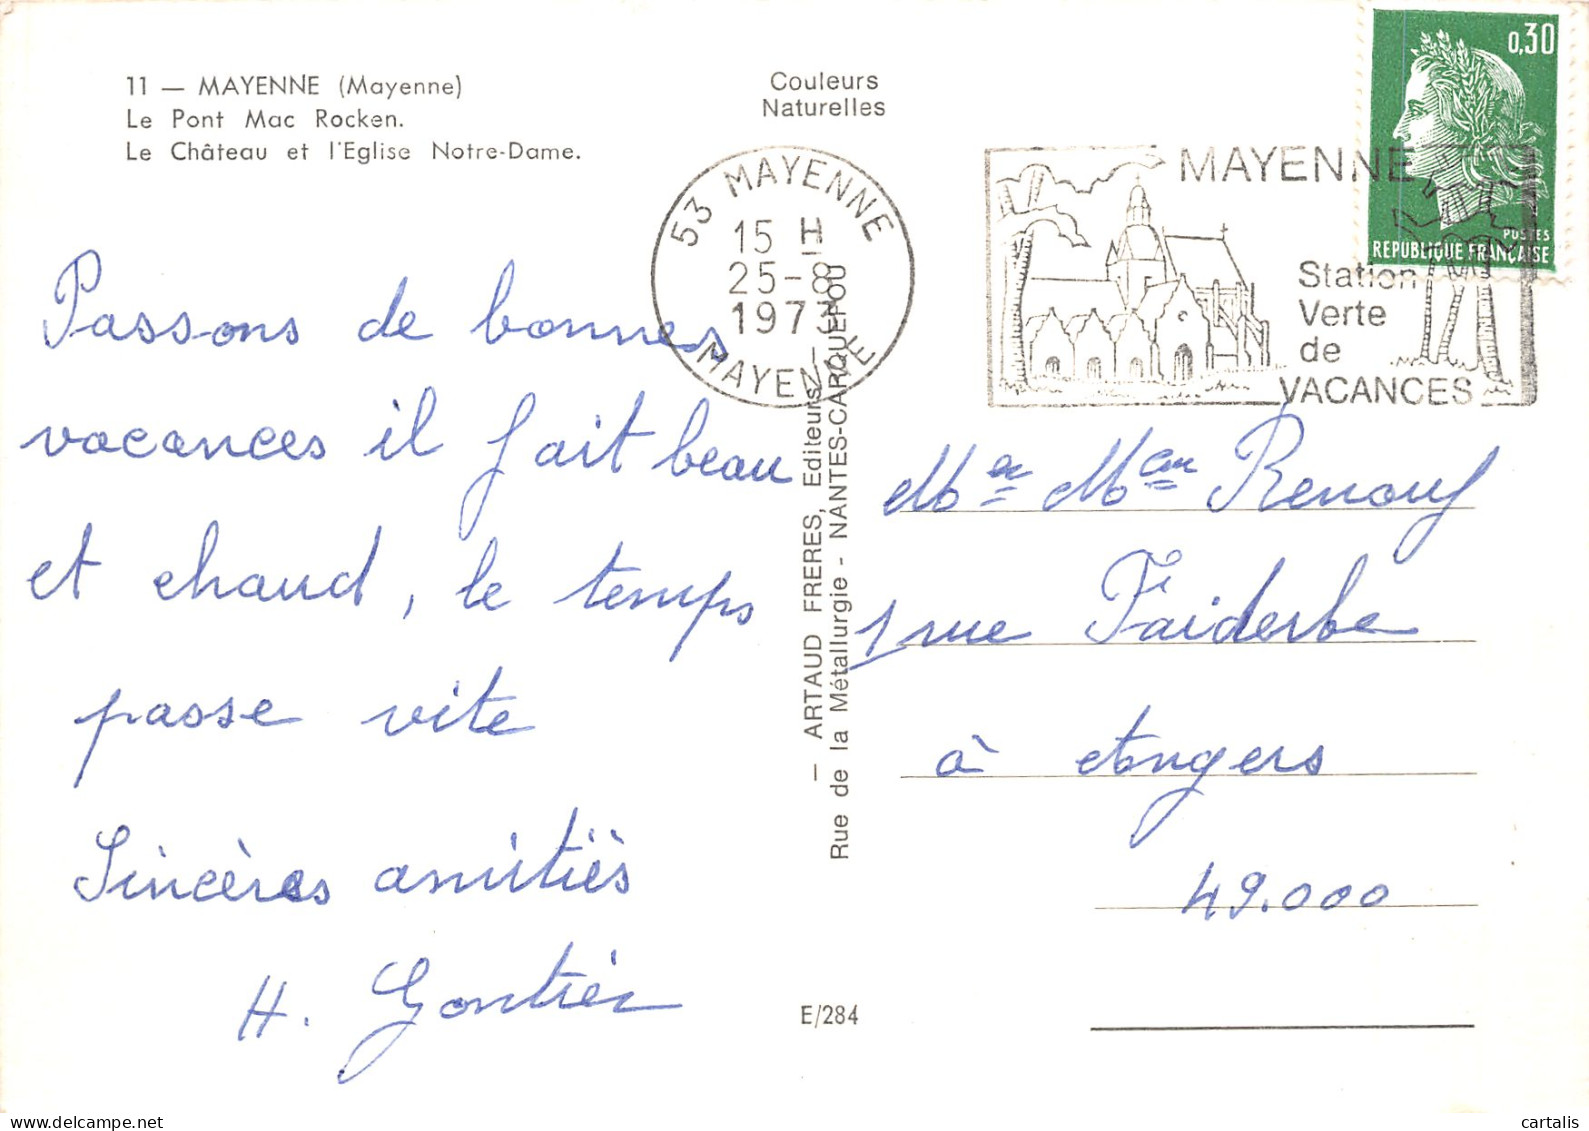 11 — MAYENNE (Mayenne)
Le Pont Mac Rocken.
Le Château et l'Eglise Notre-Dame.
Couleurs
Naturelles
53 MAYENNE
15 H
25-8
1973
MAYENNE
MAYENNE
Station
Verte
de
VACANCES
0,30
POSTES
REPUBLIQUE FRANÇAISE
Passons de bonnes
vacances il fait beau
et chaud, le temps
passe vite
Sincères amitiés
H. Gontier
— ARTAUD FRERES, Editeurs /
Rue de la Métallurgie - NANTES-CARQUEFOU
Mr et Mme Renouf
1 rue Faiderbe
à Angers
49.000
E/284
cartalis
www.delcampe.net